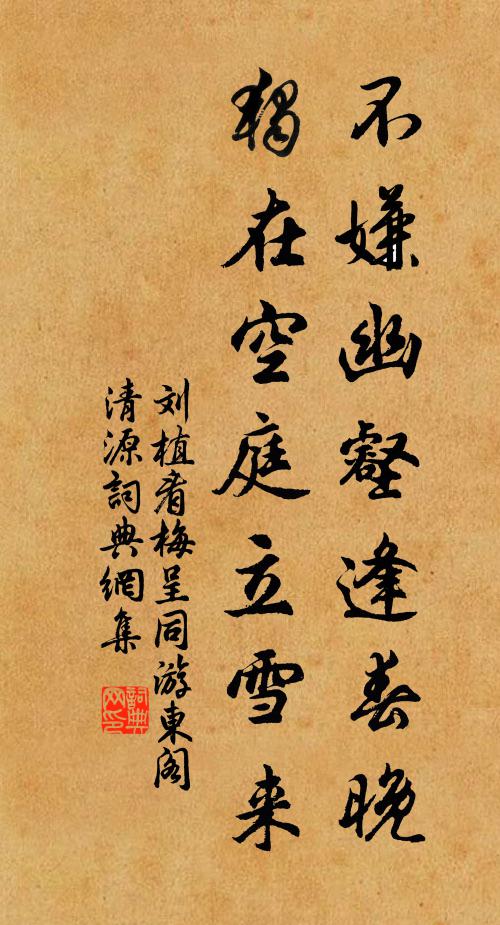 不嫌幽壑逢春晚
独在空庭立雪来
刘植看梅呈同游東阁
清源詞典網集
詞典网印